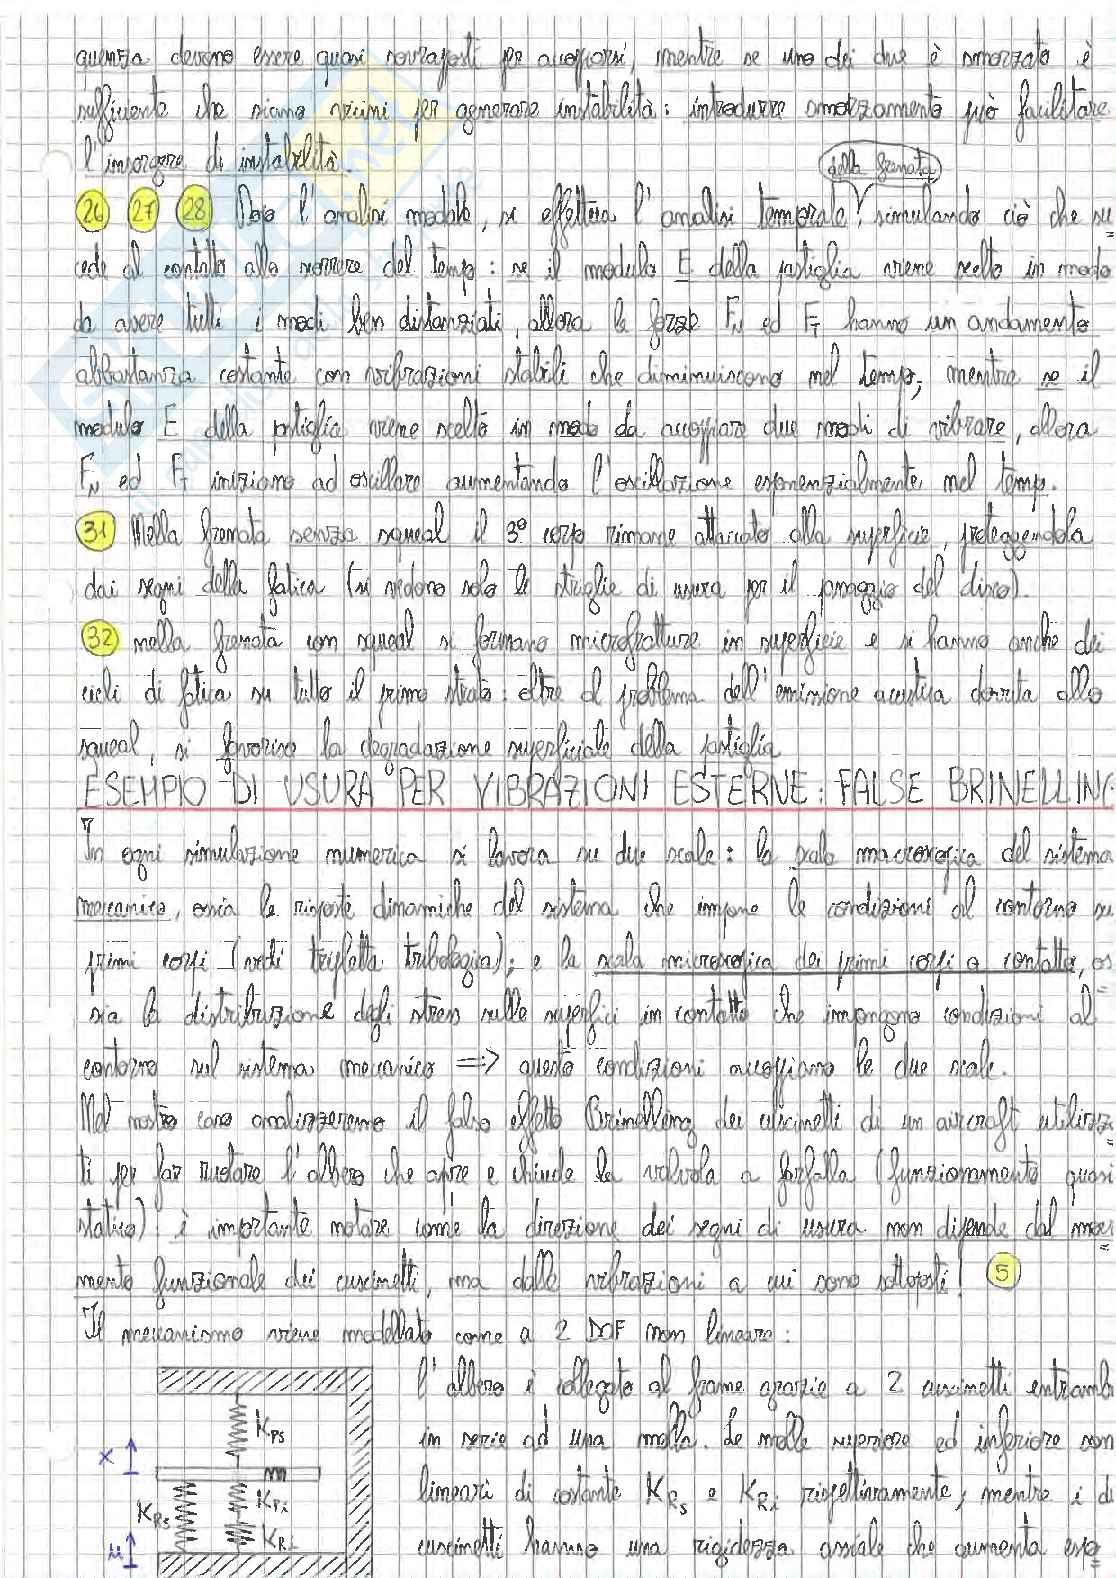 quenza devono essere quasi sovrapposti per accoppiarsi, mentre se uno dei due è smorzato è
sufficiente che siano vicini per generare instabilità: introdurre smorzamento può facilitare
l'insorgere di instabilità.
della frenata
26 27 28 Dopo l'analisi modale, si effettua l'analisi temporale, simulando ciò che su
cede al contatto allo scorrere del tempo: se il modulo E della pastiglia viene scelto in modo
da avere tutti i modi ben distanziati, allora le forze FN ed FT hanno un andamento
abbastanza costante con vibrazioni stabili che diminuiscono nel tempo; mentre se il
modulo E della pastiglia viene scelto in modo da accoppiare due modi di vibrare, allora
FN ed FT iniziano ad oscillare aumentando l'oscillazione esponenzialmente nel tempo.
31 Nella frenata senza squeal il 3° corpo rimane attaccato alla superficie, proteggendola
dai segni della fatica (si vedono solo le striglie di usura per il passaggio del disco).
32 nella frenata con squeal si formano microfratture in superficie e si hanno anche dei
cicli di fatica su tutto il primo strato: oltre al problema dell'emissione acustica dovuta allo
squeal, si favorisce la degradazione superficiale della pastiglia
ESEMPIO DI USURA PER VIBRAZIONI ESTERNE: FALSE BRINELLING
In ogni simulazione numerica si lavora su due scale: la scala macroscopica del sistema
meccanico, ossia le risposte dinamiche del sistema che impone le condizioni al contorno su
primi corpi (vedi tripletta tribologica); e la scala microscopica dei primi corpi a contatto, os
sia la distribuzione degli stress sulle superfici in contatto che impongono condizioni al
contorno sul sistema meccanico => queste condizioni accoppiano le due scale.
Nel nostro caso analizzeremo il falso effetto Brinelling dei cuscinetti di un aircraft utilizza
ti per far ruotare l'albero che apre e chiude la valvola a farfalla (funzionamento quasi
statico): è importante notare come la direzione dei segni di usura non dipende dal movi
mento funzionale dei cuscinetti, ma dalle vibrazioni a cui sono sottoposti! 5
Il meccanismo viene modellato come a 2 DOF non lineare:
l'albero è collegato al frame grazie a 2 cuscinetti entrambi
in serie ad una molla. Le molle superiore ed inferiore son
lineari di costante KRs e KRi rispettivamente, mentre i di
cuscinetti hanno una rigidezza assiale che aumenta espo
KPs
x
KPi
KRs
KRi
u